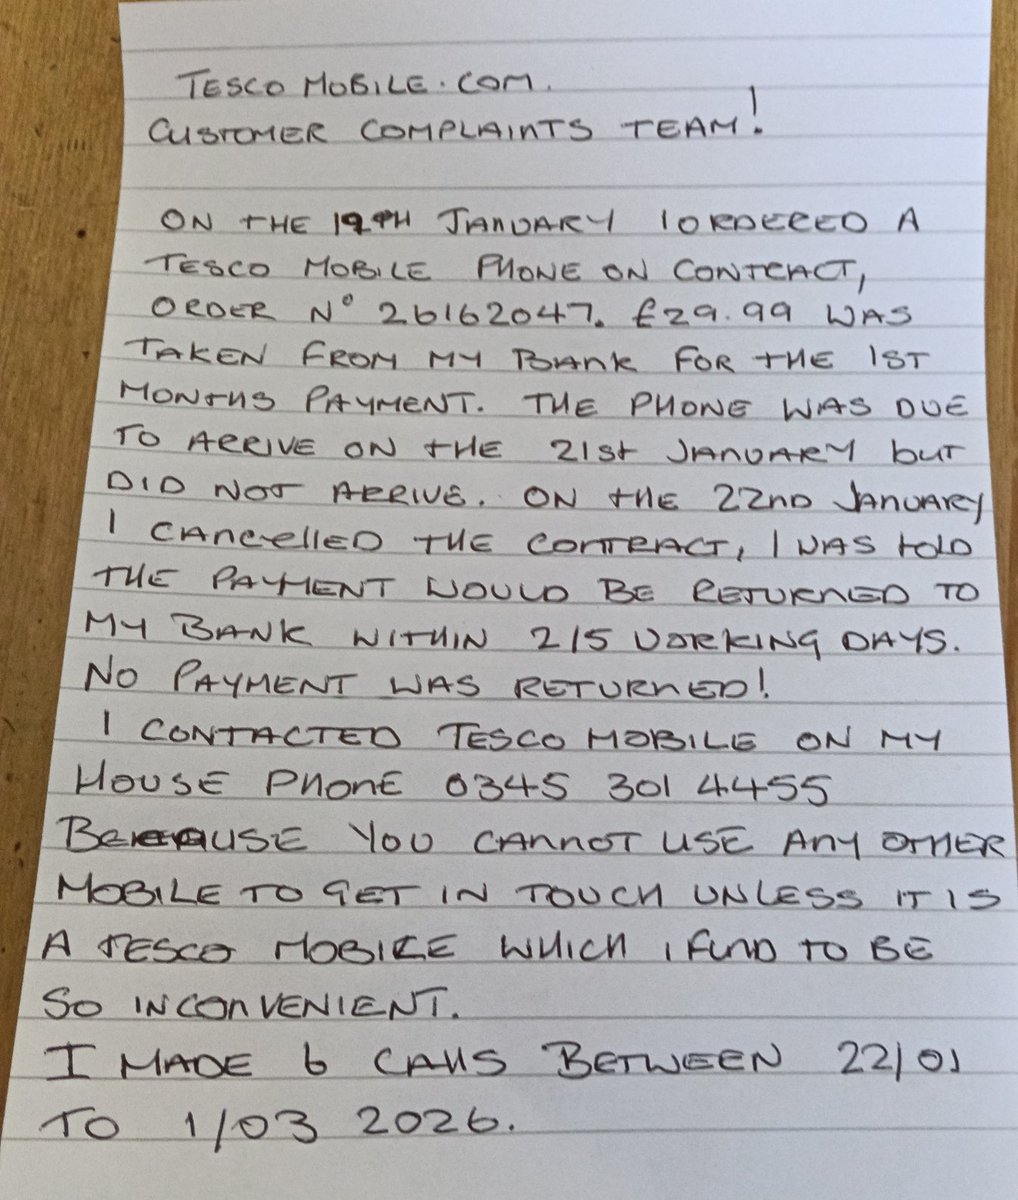 TESCO MOBILE.COM.
CUSTOMER COMPLAINTS TEAM!
ON THE 19TH JANUARY I ORDERED A
TESCO MOBILE PHONE ON CONTRACT,
ORDER Nº 26162047. £29.99 WAS
TAKEN FROM MY BANK FOR THE 1ST
MONTHS PAYMENT. THE PHONE WAS DUE
TO ARRIVE ON THE 21st JANUARY but
DID NOT ARRIVE. ON THE 22ND JANUARY
I CANCELLED THE CONTRACT, I WAS told
THE PAYMENT WOULD BE RETURNED TO
MY BANK WITHIN 2/5 WORKING DAYS.
NO PAYMENT WAS RETURNED!
I CONTACTED TESCO MOBILE ON MY
HOUSE PHONE 0345 301 4455
BECAUSE YOU CANNOT USE ANY OTHER
MOBILE TO GET IN TOUCH UNLESS IT IS
A TESCO MOBILE WHICH I FIND TO BE
SO INCONVENIENT.
I MADE 6 CALLS BETWEEN 22/01
TO 1/03 2026.